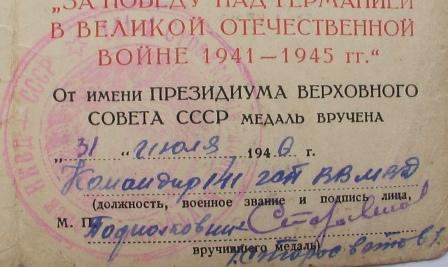 „ЗА ПОБЕДУ НАД ГЕРМАНИЕЙ
В ВЕЛИКОЙ ОТЕЧЕСТВЕННОЙ
ВОЙНЕ 1941—1945 гг.“
От имени ПРЕЗИДИУМА ВЕРХОВНОГО
СОВЕТА СССР МЕДАЛЬ ВРУЧЕНА
„31“ июля 1946 г.
Командир
ВВ МВД
(должность, военное звание и подпись лица,
М. П. Подполковник
вручившего медаль)